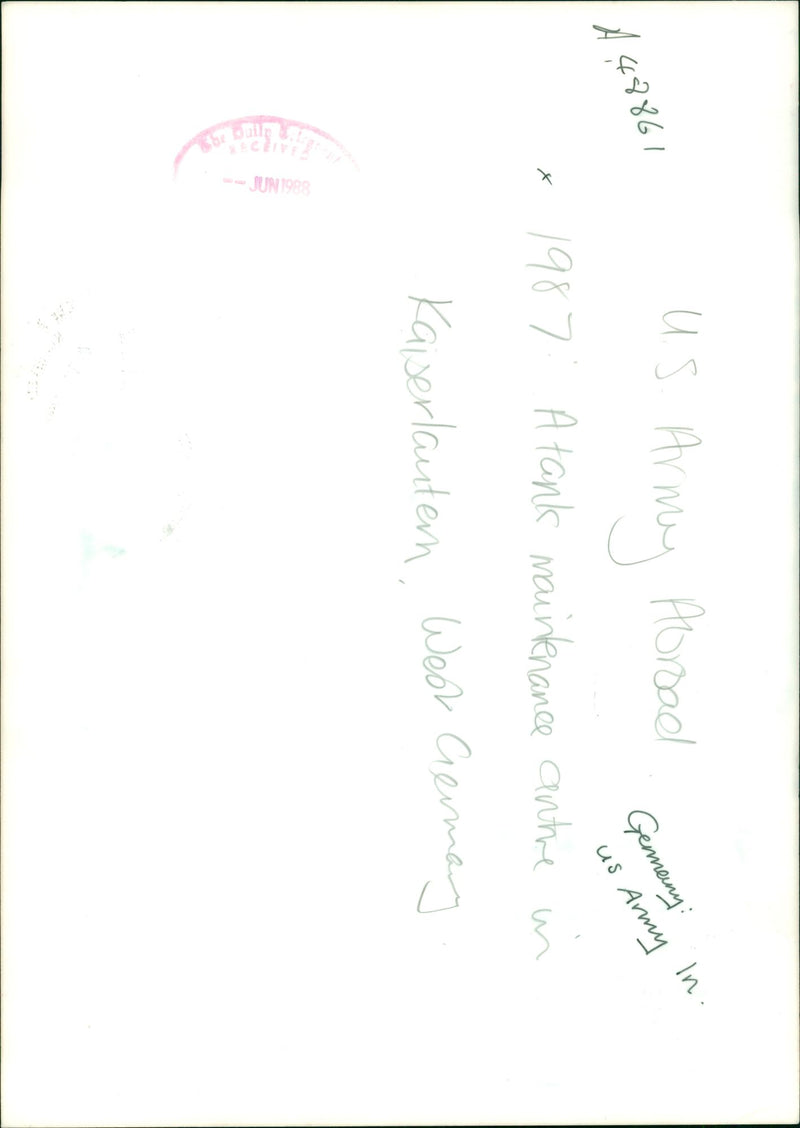 A 48861
U.S. Army Abroad.
Germany:
US Army In.
x 1987: A tank maintenance centre in
Kaiserlautern, West Germany
The Daily Telegraph
RECEIVED
-- JUN 1988